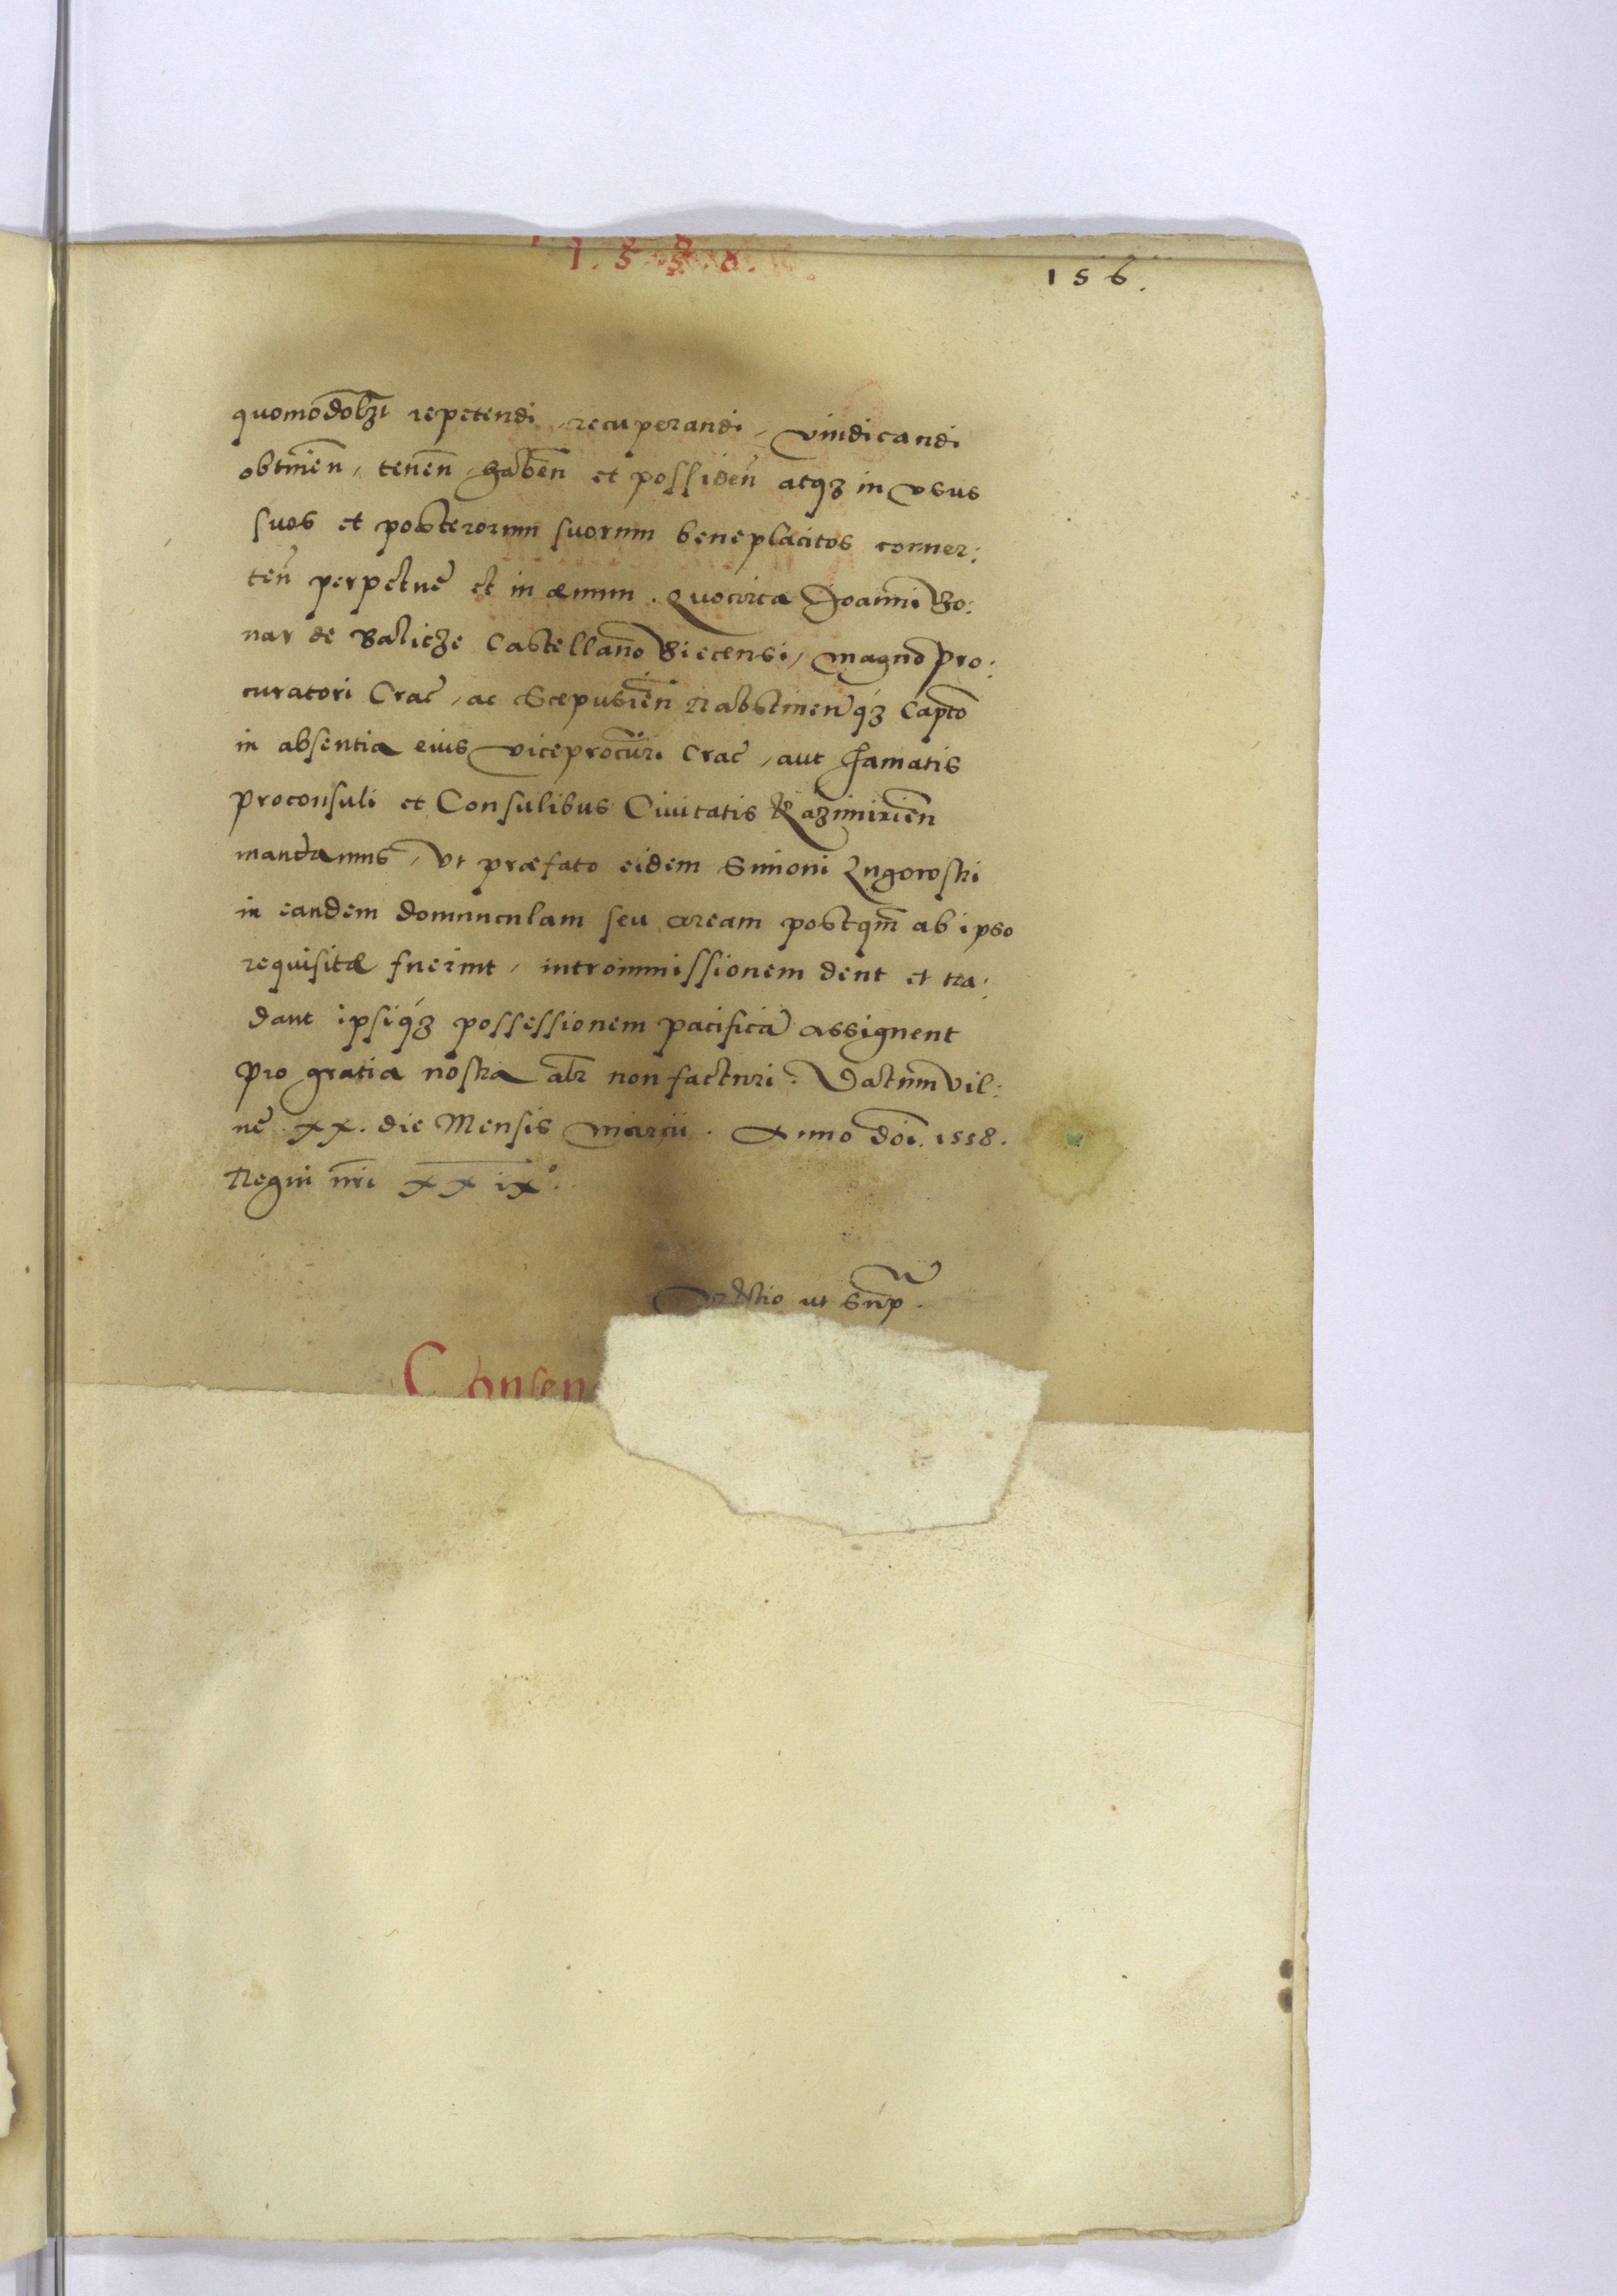 1.5.5.8.
156.
quomodolꝫt repetendi, recuperandi, vindicandi
obtineñ, teneñ, habeñ et possideñ atqꝫ in vsus
suos et posterorum suorum beneplacitos conuer:
teñ perpetue et in æuum. Quocirca Joanni Bo:
nar de Balicze Castellano Biecensi, magno pro:
curatori Crac̄, ac Scepusieñ Rabstineñqꝫ Capto
in absentia eius viceprocuri Crac̄, aut famatis
proconsuli et Consulibus Ciuitatis Kazimirieñ
mandamus, vt præfato eidem Simoni Lugowski
in eandem domunculam seu aream postqm̄ ab ipso
requisitæ fuerint, intromissionem dent et tra:
dant ipsiqꝫ possessionem pacificā assignent
pro gratia nostra alr̄ non facturi. Datum Vil:
ne XX. die Mensis Marcii. Anno doī. 1558.
Regni nr̄i XXIX°.
ut sup̄.
Consen